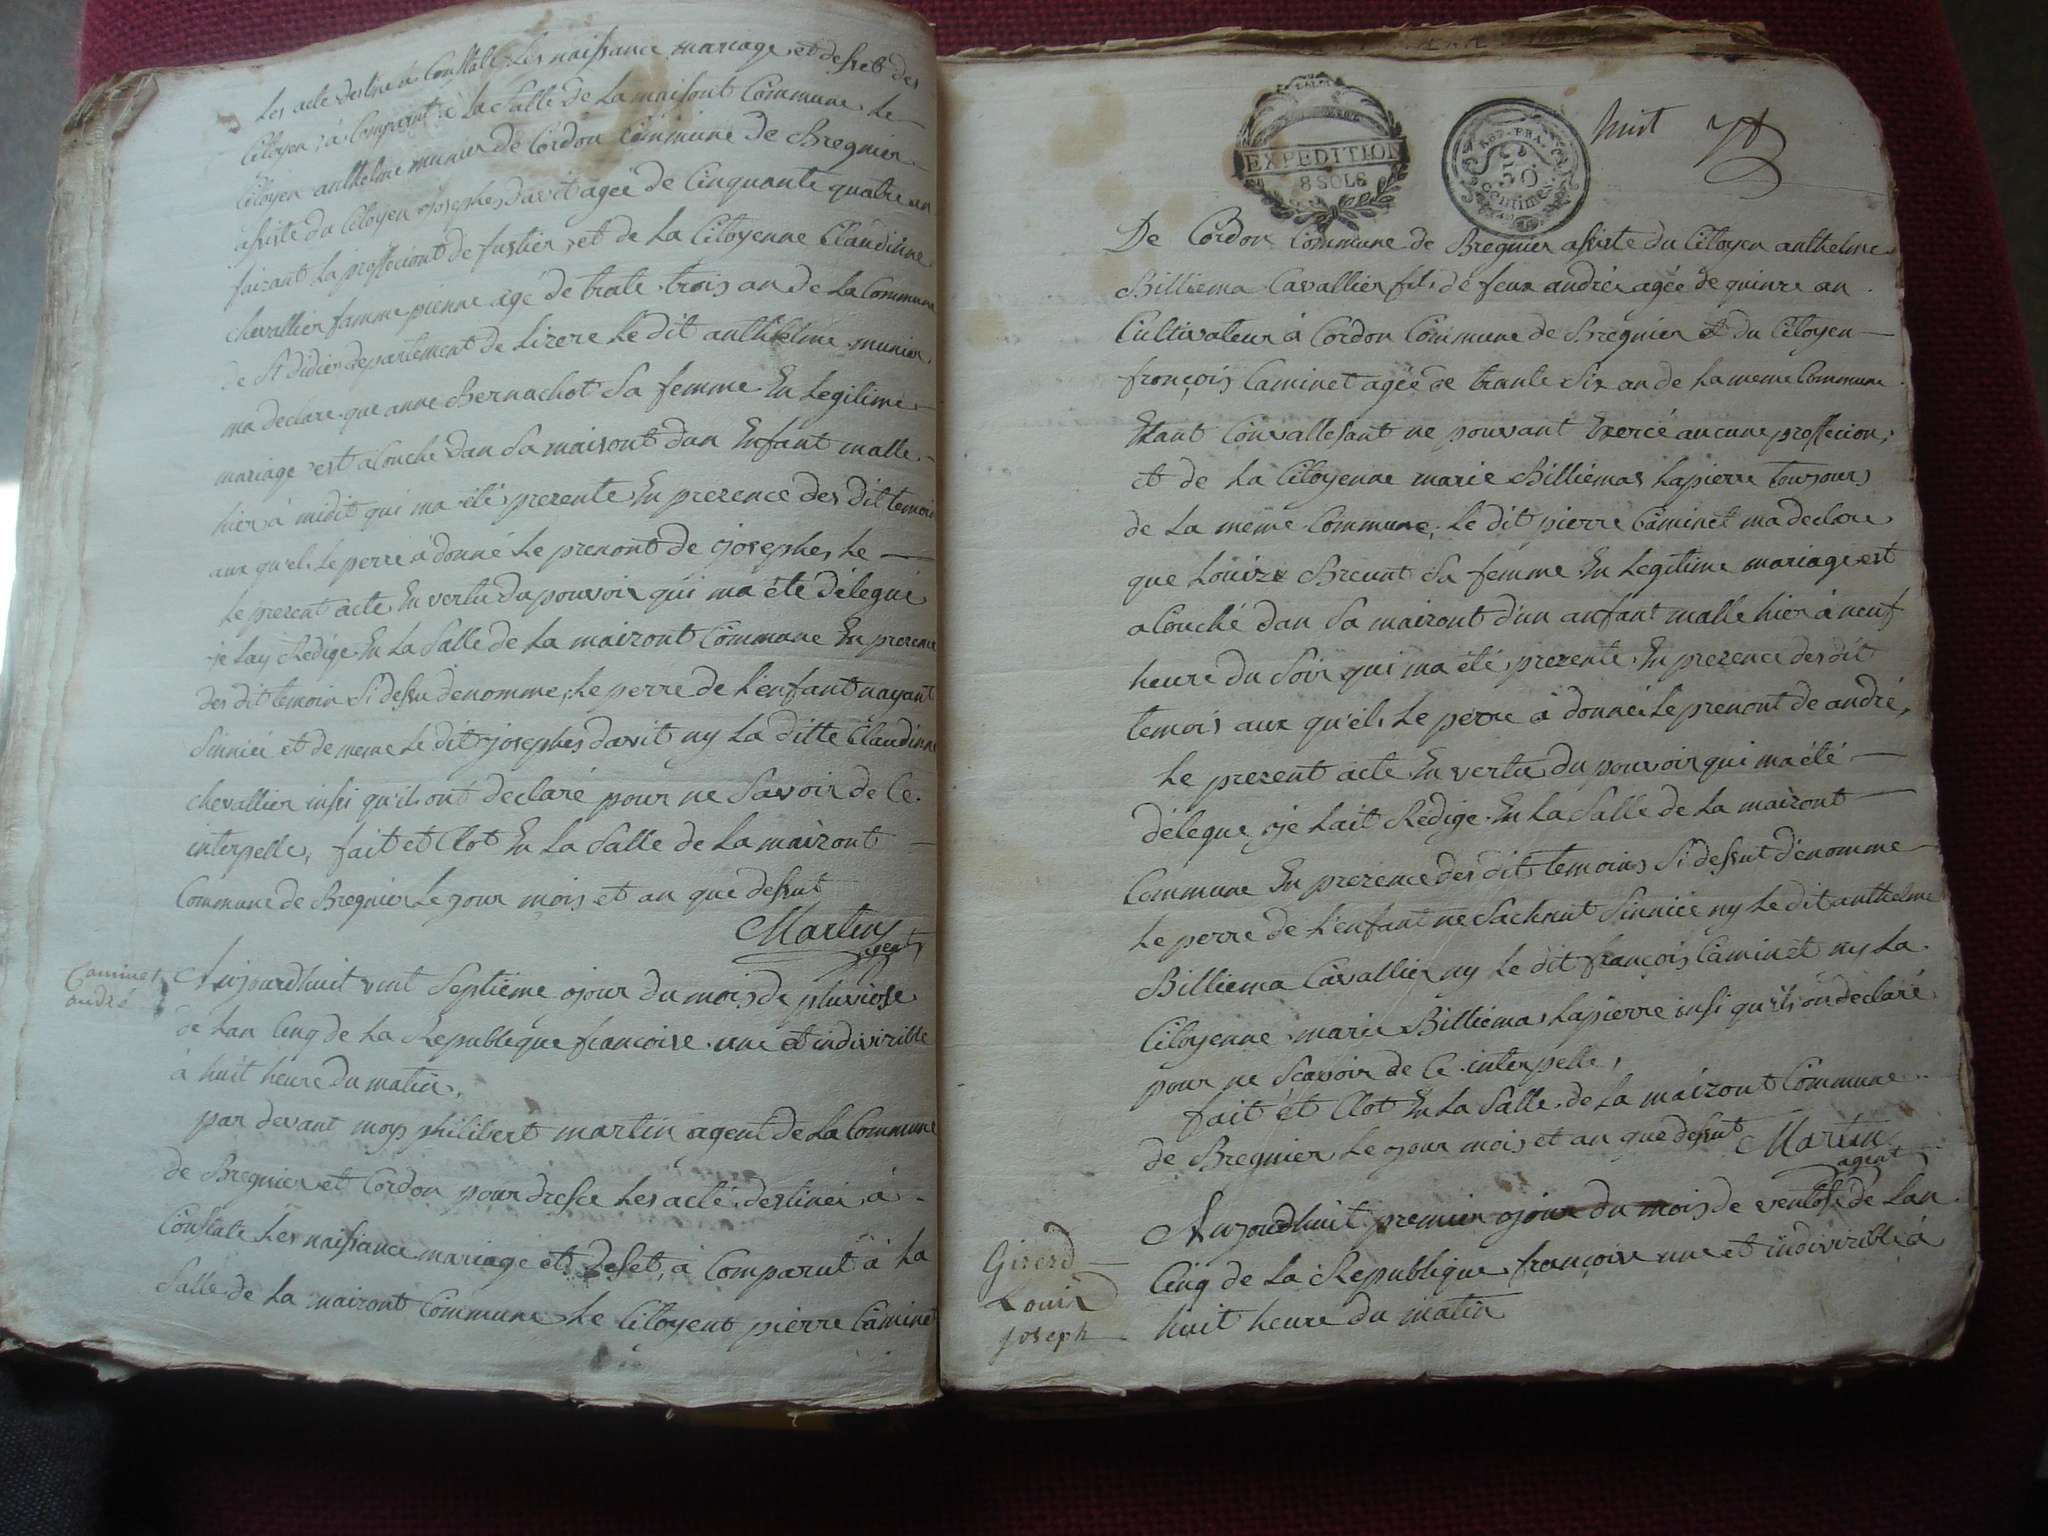 Les acte destiné à Constaté Les naissance mariage et desset des
Citoyen, à Comparut à La Salle De La maisont Commune Le
Citoyen anthelme munier De Cordon Commune De Bregnier
assiste du Citoyen josephe, Davit agée de Cinquante quatre an
faizant La proffeciont de fustier, et de La Citoyenne Claudinne
chevallier famme pienne agé de trate trois an de La Commune
de St didier departement de Lizere Le dit anthelme munier
ma declare que anne Bernachot Sa femme En Legitime
mariage est acouche dan Sa maisont dun Enfant malle
hier à midit qui ma été prezente En prezence des dit temoin
aux qu'el Le perre à donné Le prenont de josephe, Le
Le prezent acte En vertu du pouvoir qui ma été délegué
je Lay Redige En La Salle de La maizont Commune En prezence
des dit temoin Si dessu denomme, Le perre de L'enfant nayant
Sinniée et de meme Le dit josephe davit ny La ditte Claudinne
chevallier insi qu'il ont declaré pour ne Savoir de Ce
interpelle, fait et Clot En La Salle de La maizont
Commune de Bregnier Le jour mois et an que dessut
Martin
agent
Caminet
andré
Aujourdhuit vint Septième jour du mois de pluviose
de Lan Cinq de La Republique francoise une et indivizible
à huit heure du matin,
par devant moy philibert martin agent de La Commune
de Bregnier et Cordon pour dresse Les acté destinéi à
Constate Les naissance mariage et deset, à Comparut à La
Salle de La maizont Commune Le Citoyent pierre Caminet
EXPEDITION
8 SOLS
REP. FRA.
50
centimes.
huit
De Cordon Commune de Bregnier assiste du Citoyen anthelme
Billiema Cavallier fils de feux andréi agée de quinze an
Cultivateur à Cordon Commune de Bregnier et du Citoyen
françois Caminet agée de trante Six an de La meme Commune
Etant Convallesant ne pouvant Exercé aucune proffecion,
et de La Citoyenne marie Billiemas Lapierre toujours
de La même Commune, Le dit pierre Caminet ma declare
que Louize Breunt Sa femme En Legitime mariage est
acouché dan Sa maizont d'un anfant malle hier à neuf
heure du Soir qui ma été prezente En prezence des dit
temois aux qu'el Le perre à donnéi Le prenont de andré,
Le prezent acte En vertu du pouvoir qui ma été
délegue je Lait Redige En La Salle de La maizont
Commune En prezence des dit temoins Si dessut d'enomme
Le perre de L'enfant ne Sachant Sinnice ny Le dit anthelme
Billiema Cavallier ny Le dit françois Caminet ny La
Citoyenne marie Billiemas Lapierre insi qu'ils on declaré
pour ne Scavoir de Ce interpelle,
fait et Clot En La Salle de La maizont Commune
de Bregnier Le jour mois et an que dessut Martin
agent
Girerd
Louis
joseph
Aujoudhuit premier jour du mois de ventose de Lan
Cinq de La Republique françoise une et indivizible à
huit heure du matin